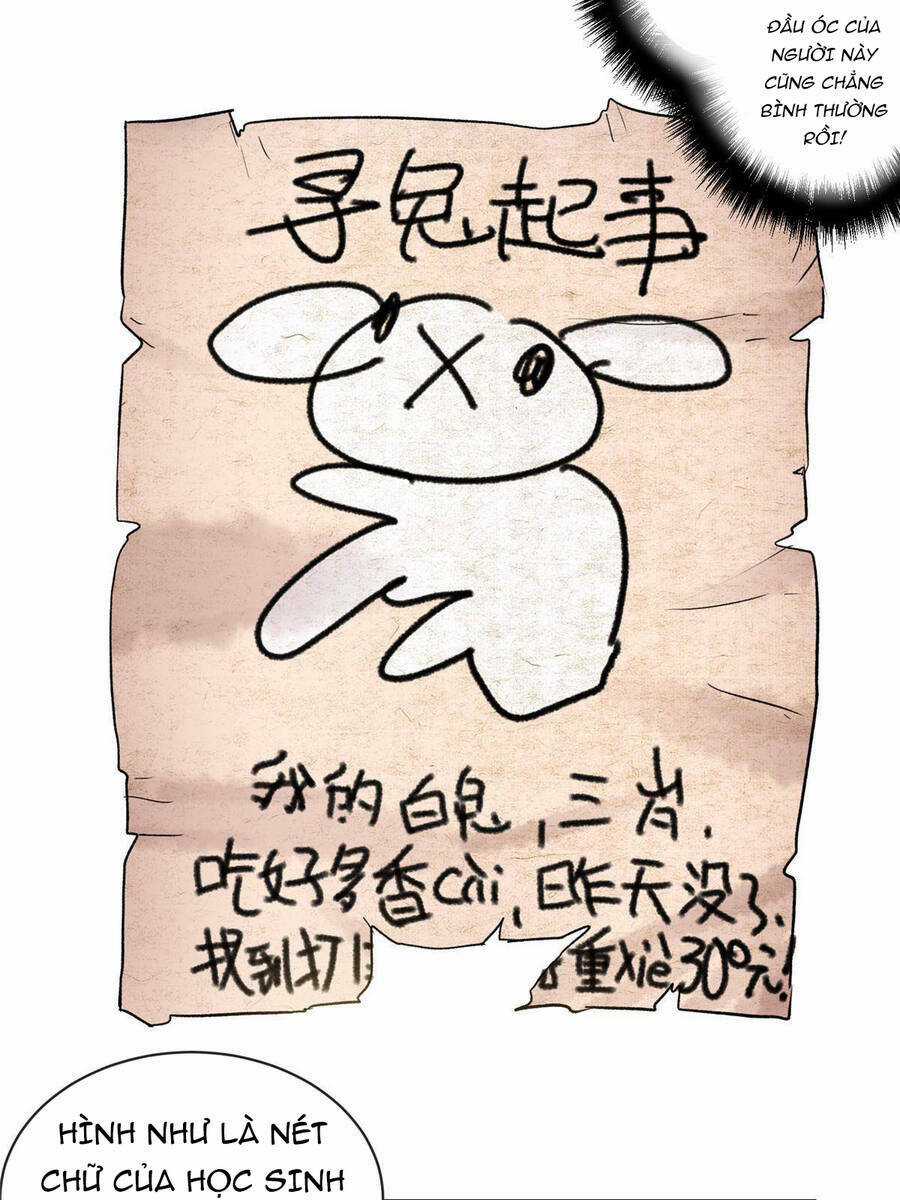 ĐẦU ÓC CỦA
NGƯỜI NÀY
CŨNG CHẲNG
BÌNH THƯỜNG
RỒI!
寻兔起事
我的白兔,三岁,
吃好多香cài,昨天没了,
找到打 重xiè300元!
HÌNH NHƯ LÀ NÉT
CHỮ CỦA HỌC SINH